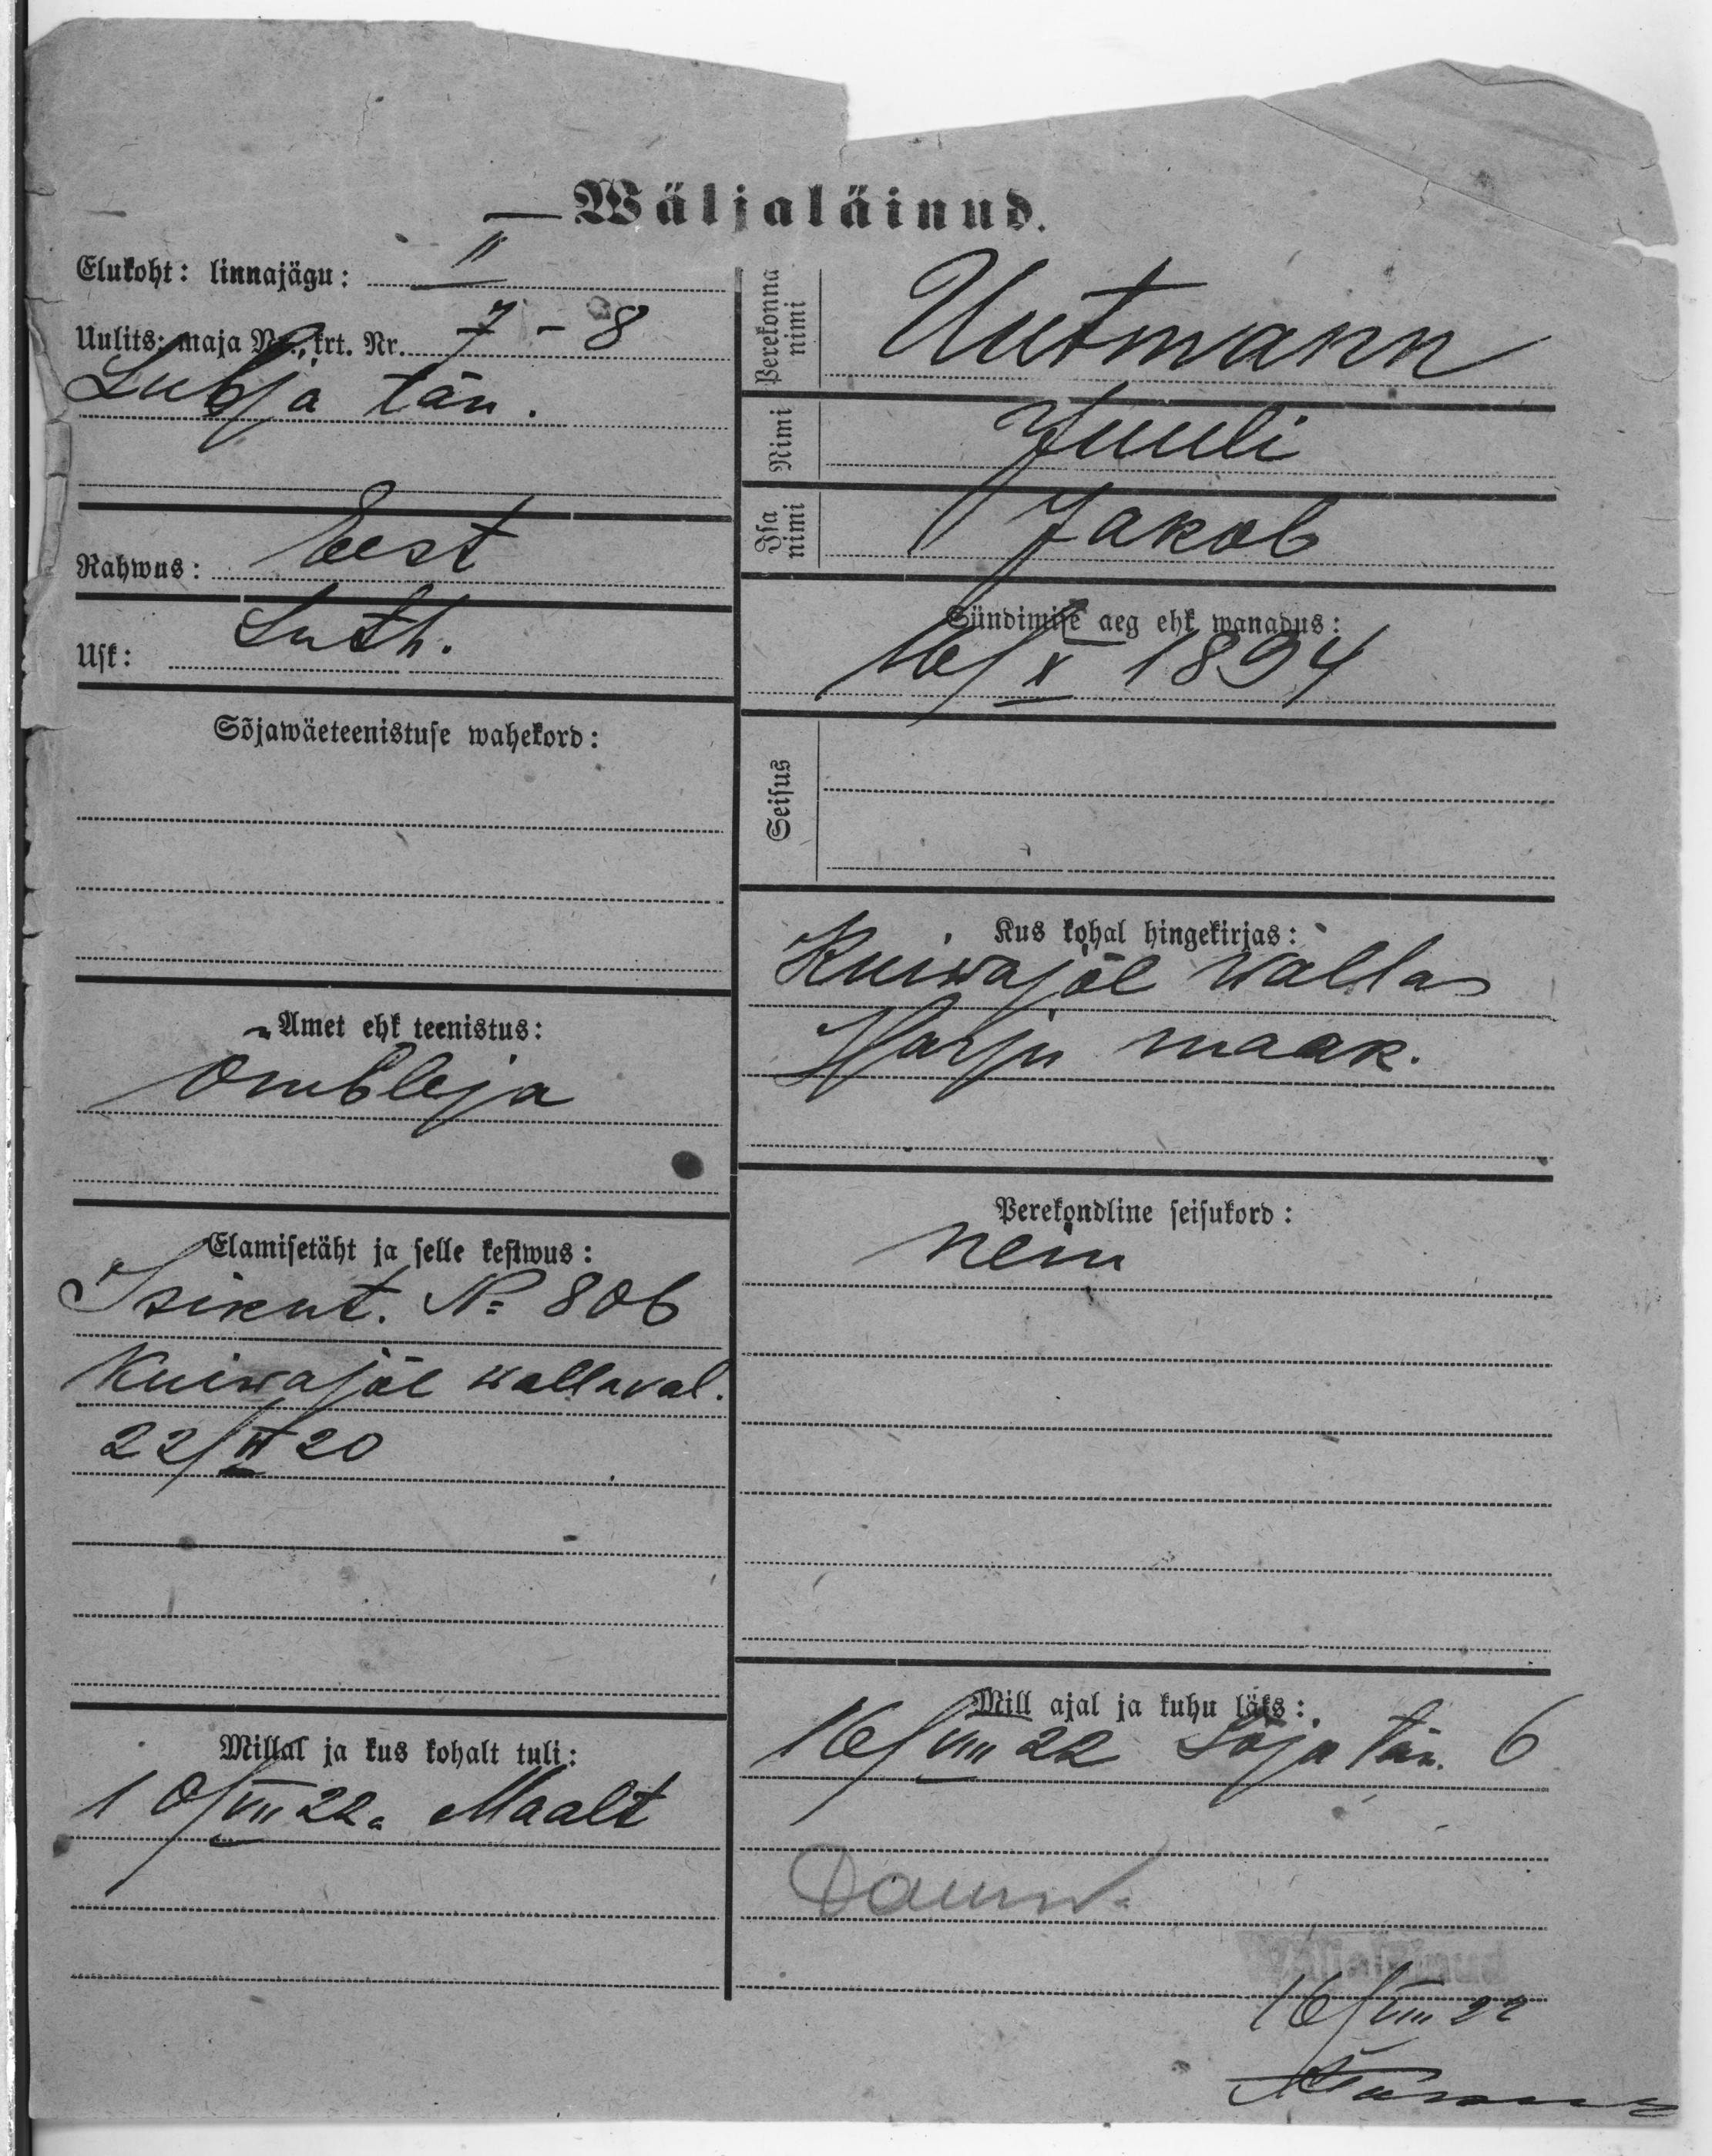 Wäljaläinud.
Elukoht: linnajägu: II
Uulits: maja Nr., krt. Nr. 7 - 8
Lubja tän.
Rahwus: Eest
Usk: Luth.
Sõjawäeteenistuse wahekord:
Amet ehk teenistus:
Ombleja
Elamisetäht ja selle kestwus:
Isikut. № 806
Kuiwajõe wallaval.
22/VI 20
Millal ja kus kohalt tuli:
10/VII 22a Maalt
Perekonna nimi Uutmann
Nimi Juuli
Isa nimi Jakob
Sündimise aeg ehk wanadus:
16/X 1894
Seisus
Kus kohal hingekirjas:
Kuiwajõe wallas
Harju maak.
Perekondline seisukord:
neiu
Mill ajal ja kuhu läks:
16/VIII 22 Sõja tän. 6
Wäljaläinud
16/VIII 22